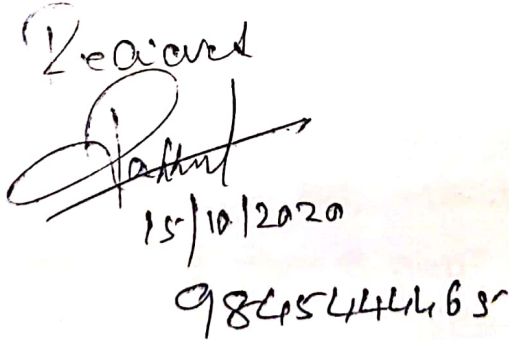 Received
15/10/2020
9845444465